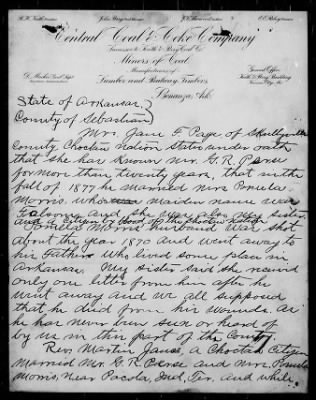 Central Coal & Coke Company
Successor to Keith & Perry Coal Co.
Miners of Coal
Manufacturers of
Lumber and Railway Timbers
General Office
Keith & Perry Building
Kansas City, Mo.
Bonanza, Ark.
State of Arkansas,
County of Sebastian
Mrs. Jane F. Page of Skullyville
County Choctaw nation States under oath
that she has known Mr. G. R. Perse
for more than twenty years, that in the
fall of 1877 he married Mrs Pamela
Morris, who maiden name was
Folsom and she was also my sister.
and a citizen by blood of the Choctaw nation
Pamela Morris husband was shot
about the year 1870 and went away to
his Father who lived some place in
Arkansas. My sister said she received
only one letter from him after he
went away and we all supposed
that he died from his wounds. as
he has never been seen or heard of
by us in this part of the County.
Rev. Martin James, a Choctaw Citizen
married Mr. G. R. Perse and Mrs Pamela
Morris, near Pocola, Ind. Ter. and while